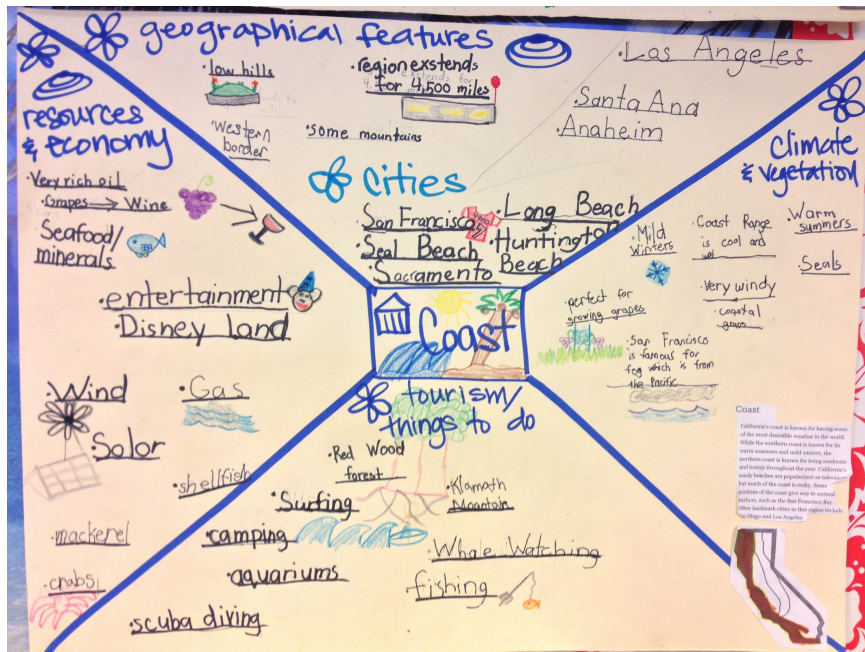 geographical features
• low hills
• western
border
• region exstends
for 4,500 miles
• some mountains
Cities
• Los Angeles
• Santa Ana
• Anaheim
• San Francisco
• Seal Beach
• Sacramento
• Long Beach
• Huntington
Beach
resources
& economy
• Very rich oil
• Grapes → Wine
Seafood/
minerals
• entertainment
• Disney land
• Wind
• Gas
• Solor
• shellfish
• mackerel
• crabs
Climate
& vegetation
• Mild
winters
• Coast Range
is cool and
wet
• Warm
summers
• Seals
• Very windy
• coastal
grass
• perfect for
growing grapes
• San Francisco
is famous for
fog which is from
the Pacific
Coast
tourism/
things to do
• Red Wood
forest
• Klamath
Mountain
• Surfing
• camping
• Whale Watching
• aquariums
• fishing
• scuba diving
Coast
California's coast is known for having some
of the most desirable weather in the world.
While the southern coast is known for its
warm summers and mild winters, the
northern coast is known for being moderate
and breezy throughout the year. California's
sandy beaches are popularized on television
but much of the coast is rocky. Some
portions of the coast give way to natural
harbors, such as the San Francisco Bay.
Other landmark cities in this region include
San Diego and Los Angeles.